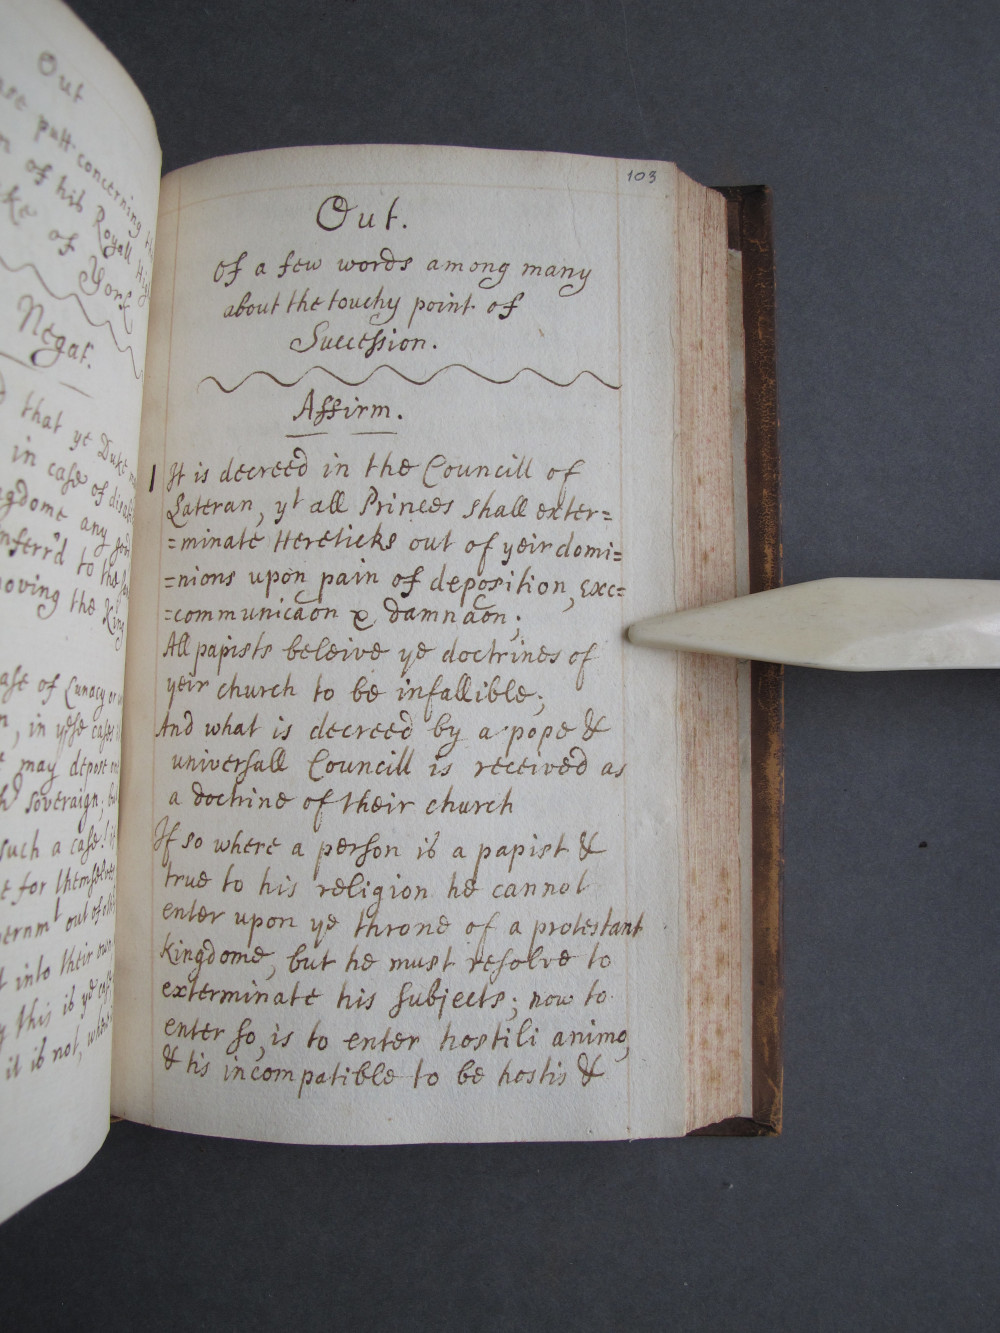 Out
putt concerning
of his Royall High
of York
Negat.
that ye Duke
in case of
any
inferr'd to the
moving the King
case of Lunacy or
in yese cases
may depose
soveraign;
such a case!
for themselves
out of
into their own
this is ye case
it is not,
103
Out.
Of a few words among many
about the touchy point of
Succession.
Affirm.
1 It is decreed in the Councill of
Lateran, yt all Princes shall exter=
=minate Hereticks out of yeir domi=
=nions upon pain of deposition, Exc=
=communicaon & damnaon;
All papists beleive ye doctrines of
yeir church to be infallible;
And what is decreed by a pope &
universall Councill is received as
a doctrine of their church
If so where a person is a papist &
true to his religion he cannot
enter upon ye throne of a protestant
kingdome, but he must resolve to
exterminate his subjects; now to
enter so, is to enter hostili animo,
& tis incompatible to be hostis &